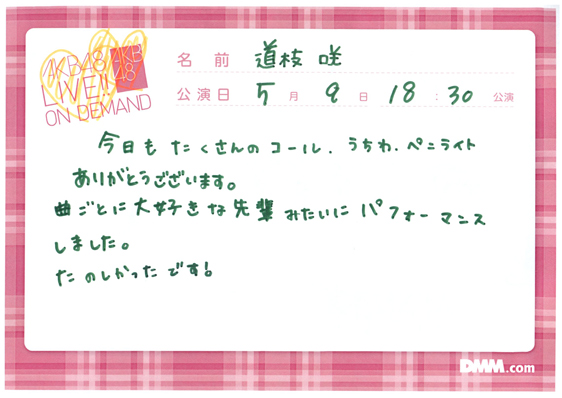 AKB48
LIVE!!
ON DEMAND
AKB
48
名前 道枝 咲
公演日 5月9日 18:30公演
今日も たくさんの コール、うちわ、ペンライト
ありがとうございます。
曲ごとに 大好きな 先輩 みたいに パフォーマンス
しました。
たのしかったです!
DMM.com